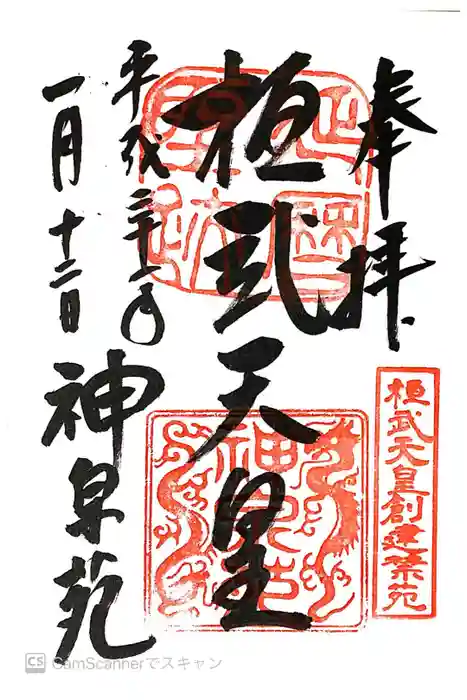 奉拝
桓武天皇創建禁苑
桓武天皇
延暦
聖蹟
神泉苑
平成三十一年
一月十二日
神泉苑
CS CamScannerでスキャン